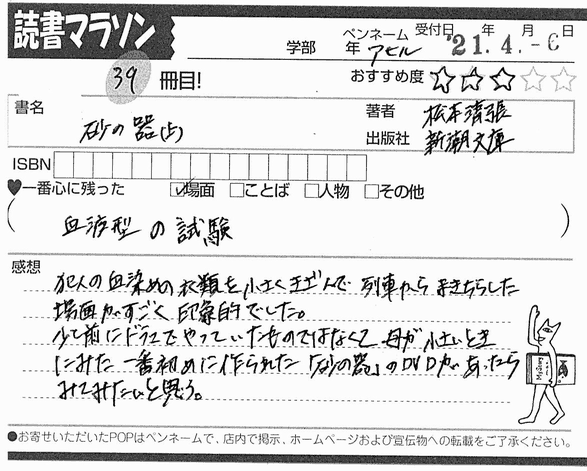 読書マラソン
学部 年 ペンネーム アヒル 受付日 '21.年4.月-6日
39 冊目!
おすすめ度 ☆☆☆☆☆
書名 砂の器(上)
著者 松本清張
出版社 新潮文庫
ISBN
♥一番心に残った ☑場面 □ことば □人物 □その他
(血液型の試験)
感想
犯人の血染めの衣類を小さくきざんで列車からまきちらした
場面がすごく印象的でした。
少し前にドラマでやっていたものではなくて母が小さいとき
にみた一番初めに作られた「砂の器」のDVDがあったら
みてみたいと思う。
●お寄せいただいたPOPはペンネームで、店内で掲示、ホームページおよび宣伝物への転載をご了承ください。